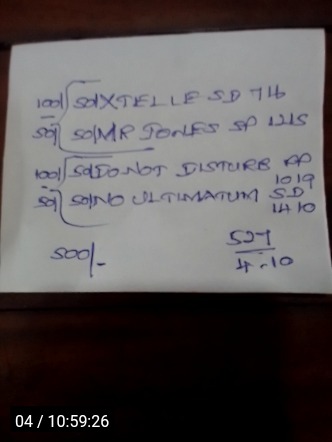 100/ 50/ XTELLE SD 716
50/ 50/ MR JONES SP 1215
100/ 50/ DO NOT DISTURB RP 1019
50/ 50/ NO ULTIMATUM SD 1410
500/-
527
4:10
04 / 10:59:26